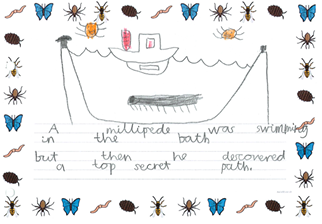 A millipede was swimming
in the bath
but then he descovered
a top secret path.